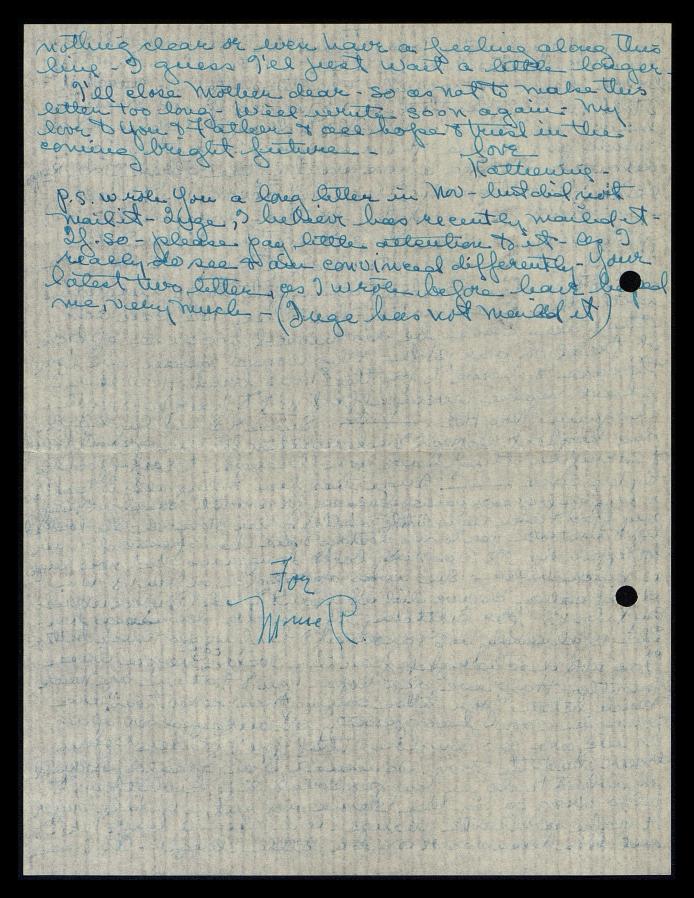 nothing clear or even have a feeling along this
line - I guess I'll just wait a little longer.
I'll close Mother dear - so as not to make this
letter too long. Will write soon again. My
love to you & Father & all hope & trust in the
coming bright future -
Love
Katherine -
P.S. wrote you a long letter in Nov - but did not
mail it - Inge, I believe has recently mailed it -
If so - please pay little attention to it - as I
really do see & am convinced differently - Your
latest two letters, as I wrote before have helped
me very much - (Inge has not mailed it)
For
R.